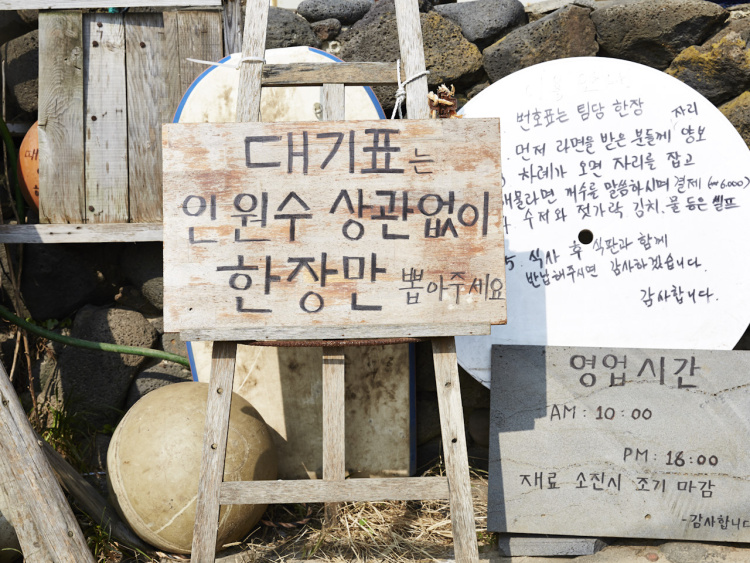 대기표는
인원수 상관없이
한장만 뽑아주세요
번호표는 팀당 한장
자리
먼저 라면을 받은 분들께 양보
차례가 오면 자리를 잡고
갯수를 말씀하시며 결제 (₩6.000)
수저와 젓가락 김치.물 등은 셀프
5. 식사 후 식판과 함께
반납해주시면 감사하겠습니다.
감사합니다.
영업시간
AM : 10 : 00
PM : 18 : 00
재료 소진시 조기 마감
-감사합니다